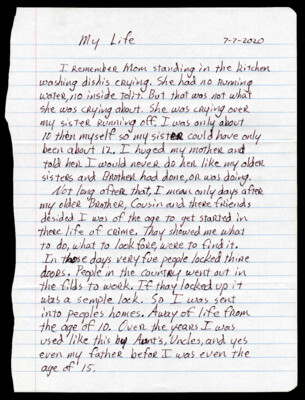 My Life 7-7-2020
I remember Mom standing in the kitchen
washing dishis crying. She had no running
water, no inside tolit. But that was not what
she was crying about. She was crying over
my sister running off. I was only about
10 then myself so my sister could have only
been about 12. I huged my mother and
told her I would never do her like my older
sisters and Brother had done, or was doing.
Not long ofter that, I mean only days after
my older Brother, Cousin and there friends
desided I was of the age to get started in
there life of crime. They showed me what
to do, what to look fore, were to find it.
In those days very fue people locked thine
doors. People in the country went out in
the filds to work. If thay locked up it
was a semple lock. So I was sent
into peoples homes. Away of life from
the age of 10. Over the years I was
used like this by Aunt's, Uncles, and yes
even my father befor I was even the
age of 15.